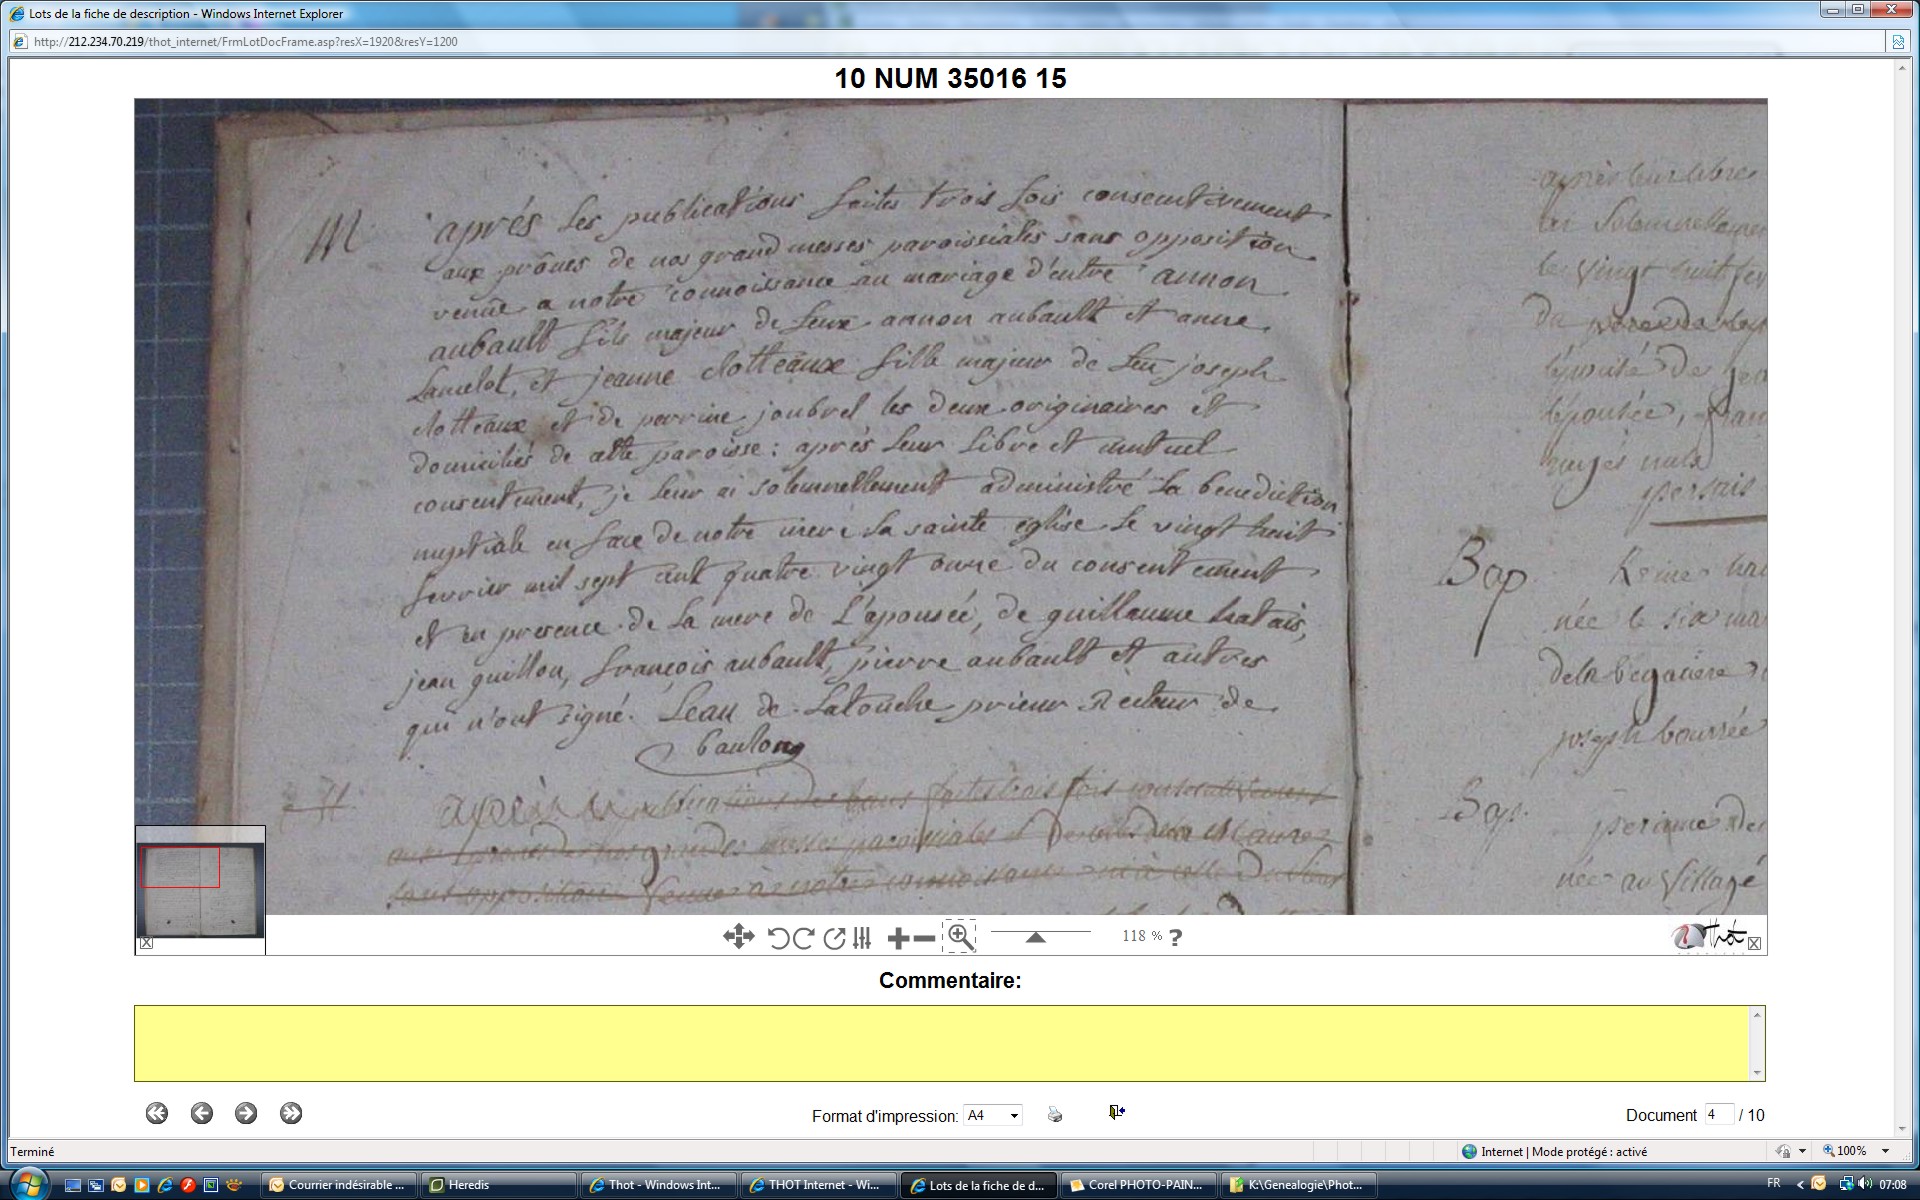 Lots de la fiche de description - Windows Internet Explorer
http://212.234.70.219/thot_internet/FrmLotDocFrame.asp?resX=1920&resY=1200
10 NUM 35016 15
M
après les publications faites trois fois consecutivement
aux prônes de nos grand messes paroissiales sans opposition
venüe a notre connoissance au mariage d'entre annon
aubault fils majeur de feux annon aubault et anne
Lamelot, et jeanne clotteaux fille majeur de feu joseph
clotteaux et de perrine joubrel les deux originaires et
domiciliés de cette paroisse: après leur libre et mutuel
consentement, je leur ai solemnellement administré la benediction
nuptiale en face de notre mere la sainte église le vingt huit
fevrier mil sept cent quatre vingt onze du consentement
et en presence de la mere de l'épousée, de guillaume
jean guillou, françois aubault, pierre aubault et autres
qui n'ont signé. Leau de Latouche prieur Recteur de
baulong
après publications des bans faites trois fois consecutivement
aux prones de nos grandes messes paroissiales et
sans opposition venue à notre connoissance ni à celle
après leur libre
solemnellement
le vingt huit fev
du
Bap
née le six ma
joseph bourrée
Bap.
née au village
118 % ?
Thot
Commentaire:
Format d'impression: A4
Document 4 / 10
Terminé
Internet | Mode protégé : activé
100%
Courrier indésirable ...
Heredis
Thot - Windows Int...
THOT Internet - Wi...
Lots de la fiche de d...
Corel PHOTO-PAIN...
K:\Genealogie\Phot...
FR
07:08